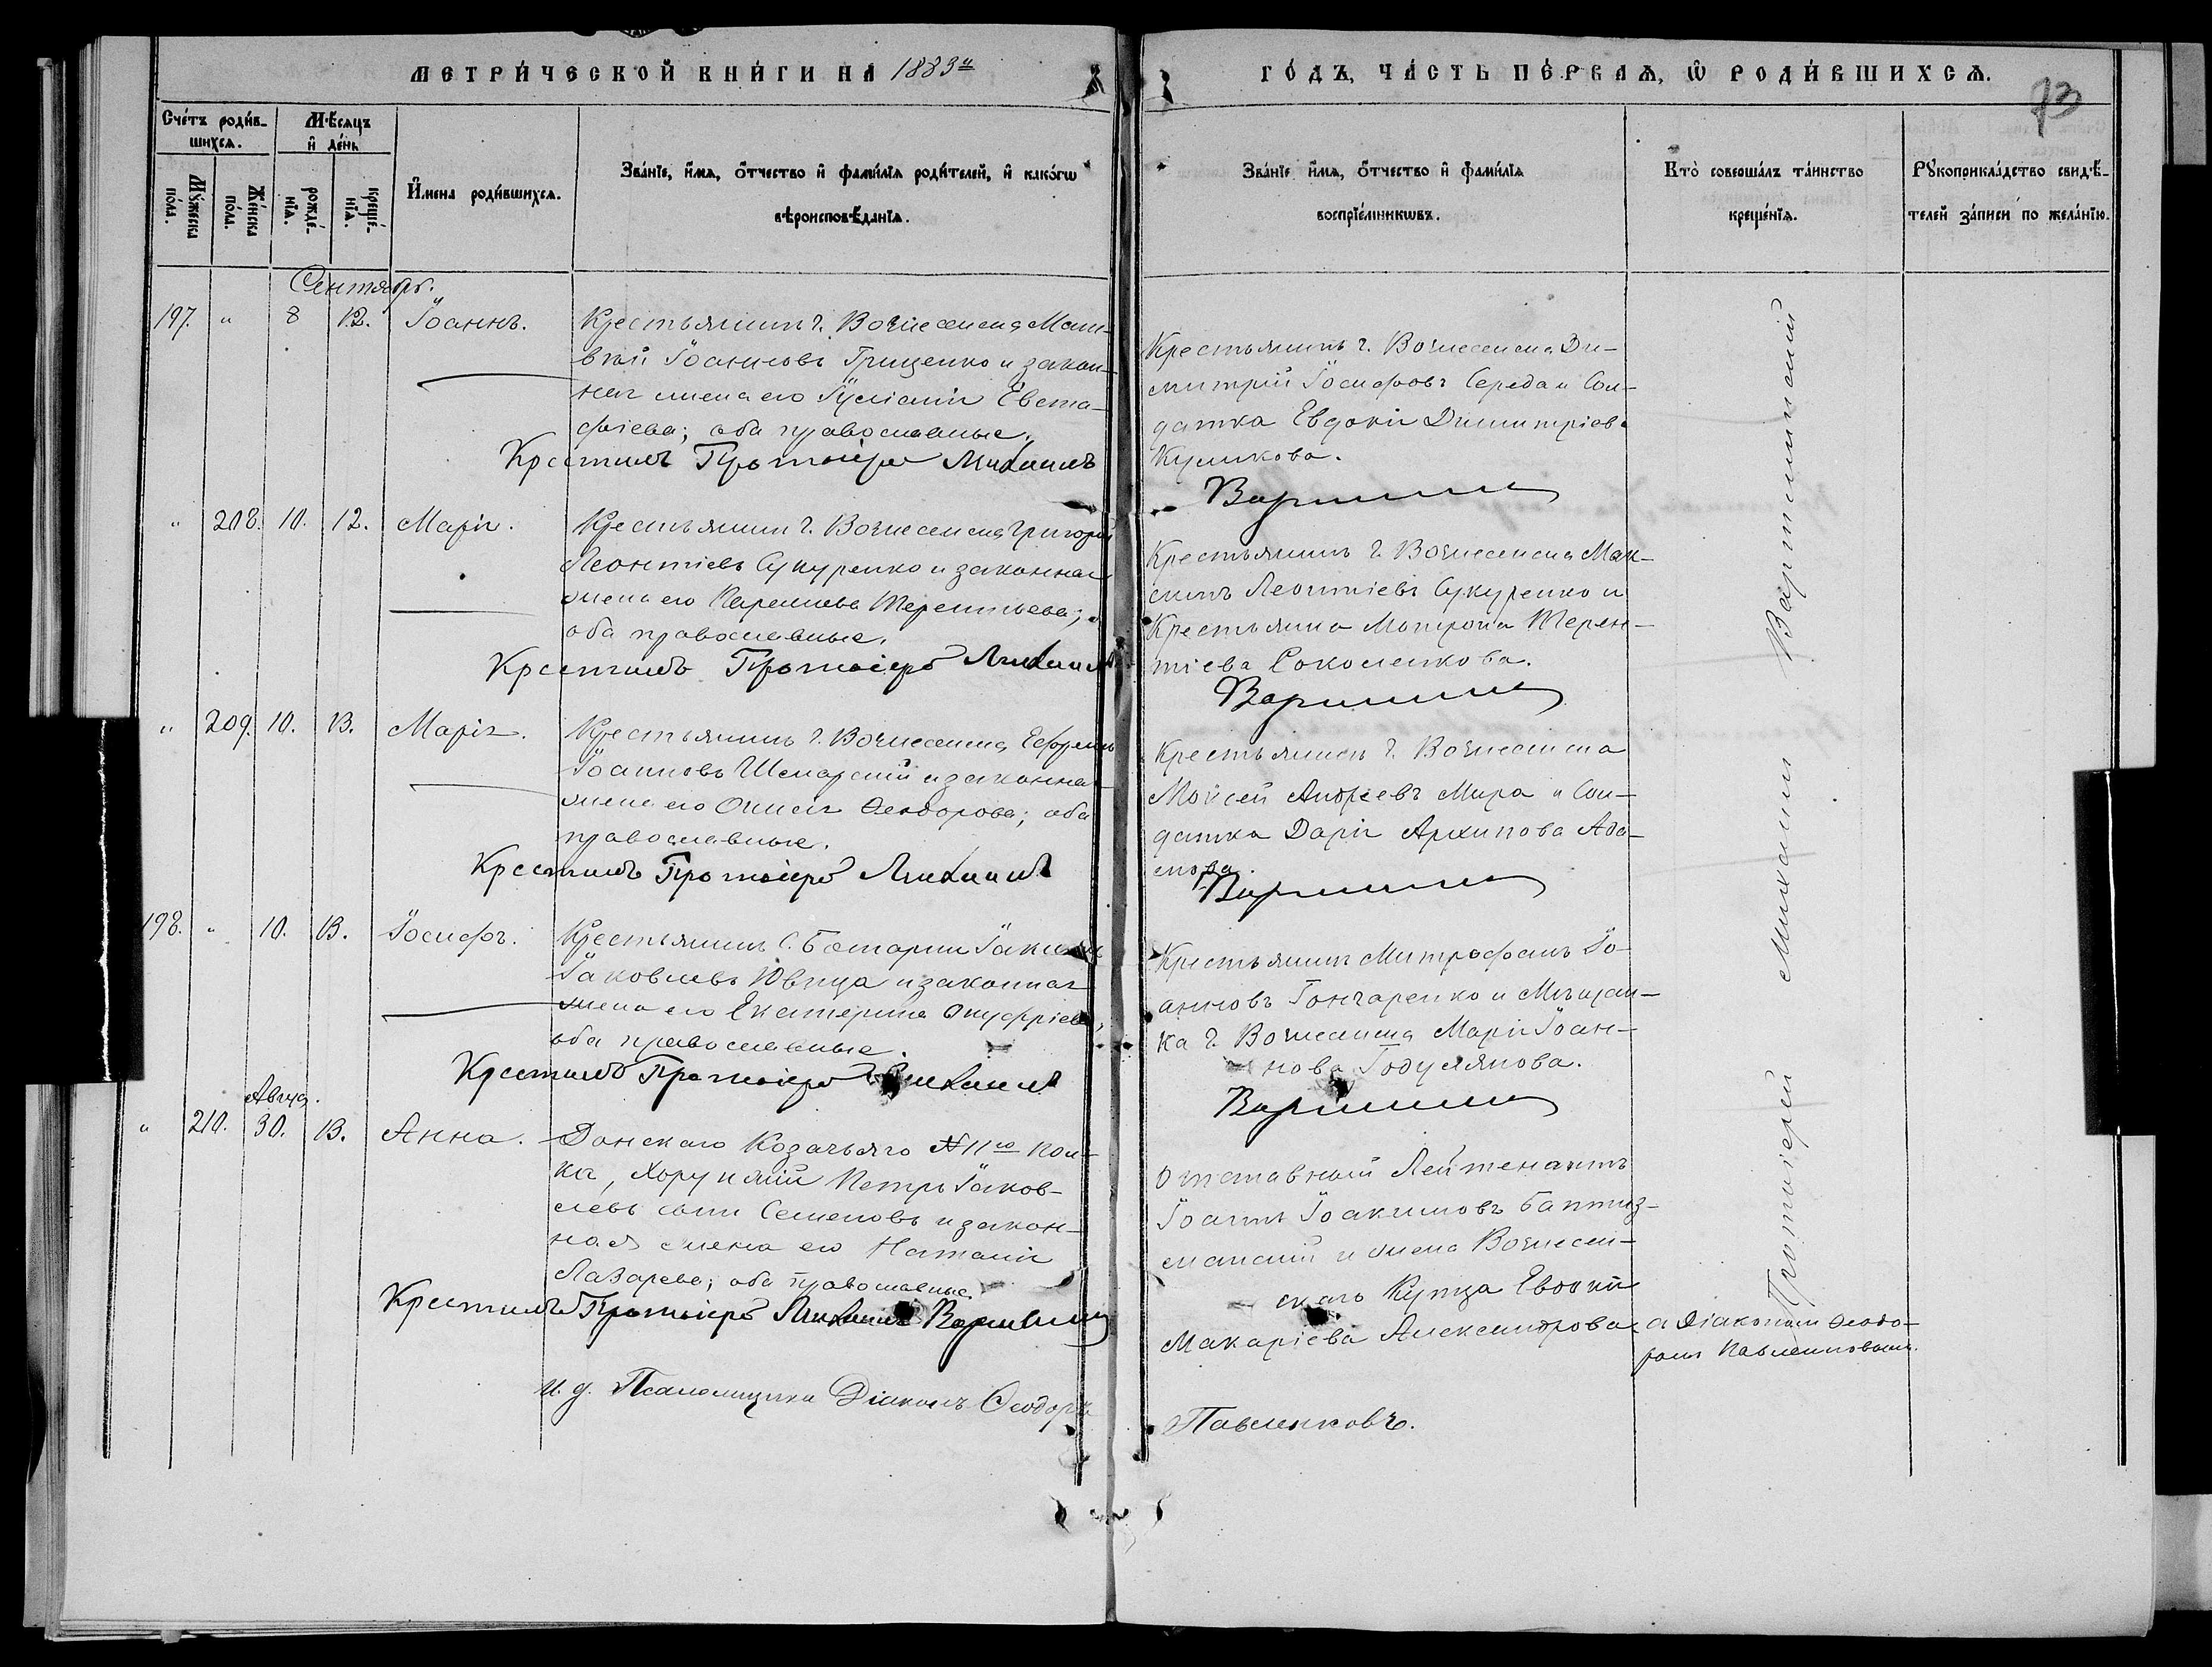 МЕТРИ́ЧЕСКОЙ КНИ́ГИ НА 1883й
ГО́ДЪ, ЧА́СТЬ ПЕ́РВАѦ, Ѿ РОДИ́ВШИХСѦ.
73
Сче́тъ роди́в-
шихсѧ.
Мѣ́сяцъ
и҆ де́нь
Мꙋ́жеска
по́ла.
Же́нска
по́ла.
рожде́-
нїѧ.
креще́-
нїѧ.
И҆мена роди́вшихсѧ.
Зва́нїе, и҆́мѧ, ѻ҆́тчество и҆ фами́лїѧ роди́телей, и҆ како́гѡ
вѣроисповѣ́данїѧ.
Зва́нїе и҆́мѧ, ѻ҆́тчество и҆ фами́лїѧ
воспрїе́мникѡвъ.
Кто̀ соверша́лъ та́инство
креще́нїѧ.
Рꙋкоприкла́дство свидѣ́-
телей за́писи по жела́нїю.
Сентябрь.
197. " 8 12. Іоаннъ.
Крестьянинъ г. Вознесенска Мат-
вѣй Іоанновъ Грищенко и закон-
ная жена его Іуліанія Евста-
фіева; оба православные.
Крестилъ Протоіерей Михаилъ
Крестьянинъ г. Вознесенска Ди-
митрій Іосифовъ Середа и Сол-
датка Евдокія Димитріева
Куликова.
" 208. 10. 12. Марія.
Крестьянинъ г. Вознесенска Григорій
Леонтіевъ Сукуренко и законная
жена его Терентьева;
оба православные.
Крестилъ Протоіерей Михаилъ
Крестьянинъ г. Вознесенска Мак-
симъ Леонтіевъ Сукуренко и
Крестьянка Матрона Терен-
тіева Соколенкова.
" 209. 10. 13. Марія.
Крестьянинъ г. Вознесенска Ефремъ
Іоанновъ и законная
жена его Ѳеодорова; оба
православные.
Крестилъ Протоіерей Михаилъ
Крестьянинъ г. Вознесенска
Моисей Андреевъ Мира и Сол-
датка Дарія Архипова Ада-
мова.
198. " 10. 13. Іосифъ.
Крестьянинъ С.
Іаковлевъ и законная
жена его Екатерина Онуфріева,
оба православные.
Крестилъ Протоіерей Михаилъ
Крестьянинъ Митрофанъ Іо-
анновъ Гончаренко и Мѣщан-
ка г. Вознесенска Марія Іоан-
нова
Авгус.
" 210. 30. 13. Анна.
Донскаго Козачьяго №11го пол-
ка, Хорунжій Петръ Іаков-
левъ сынъ Семеновъ и закон-
ная жена его Наталія
Лазарева; оба православные.
Крестилъ Протоіерей Михаилъ Вартминскій
Отставной Лейтенантъ
Іоаннъ Іоакимовъ Баптиз-
манскій и жена Вознесен-
скаго Купца Евдокія
Макаріева Александрова
Протоіерей Михаилъ Вартминскій
съ Діакономъ Ѳеодо-
ромъ Павленковымъ.
И. д. Псаломщика Діаконъ Ѳеодоръ
Павленковъ.